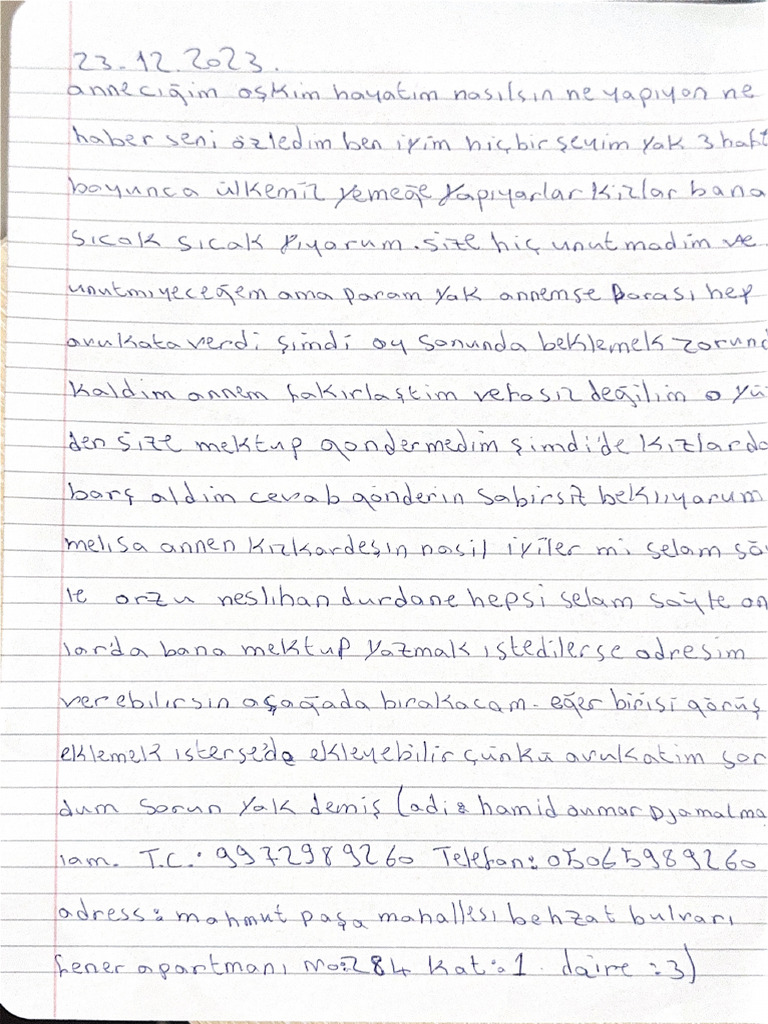 23.12.2023.
anneciğim aşkim hayatım nasılsın ne yapıyon ne
haber seni özledim ben iyim hiçbir şeyim yak 3 haft
boyunca ülkemiz yemeğe yapıyarlar kızlar bana
sıcak sıcak yıyarum. size hiç unutmadim ve
unutmıyeceğem ama param yak annemse parası hep
avukata verdi şimdi ay sonunda beklemek zorund
kaldim annem fakırlaştim vefasız değilim o yü
den size mektup gondermedim şimdi'de kızlarda
barş aldim cevab gönderin sabirsiz beklıyarum
melısa annen kızkardeşin nasil iyiler mi selam sö
le arzu neslıhan durdane hepsi selam söyle on
lar'da bana mektup yazmak ıstedilerse adresim
verebilirsin aşağada bırakacam. eğer birisi görüş
eklemek isterse'de ekleyebilir çünkü avukatim sor
dum sorun yak demiş (adi: hamid oumar Djamalma
lam. T.C.: 9972989260 Telefon: 05065989260
adress: mahmut paşa mahallesı behzat bulvarı
fener apartmanı no:284 kat:1. daire :3)